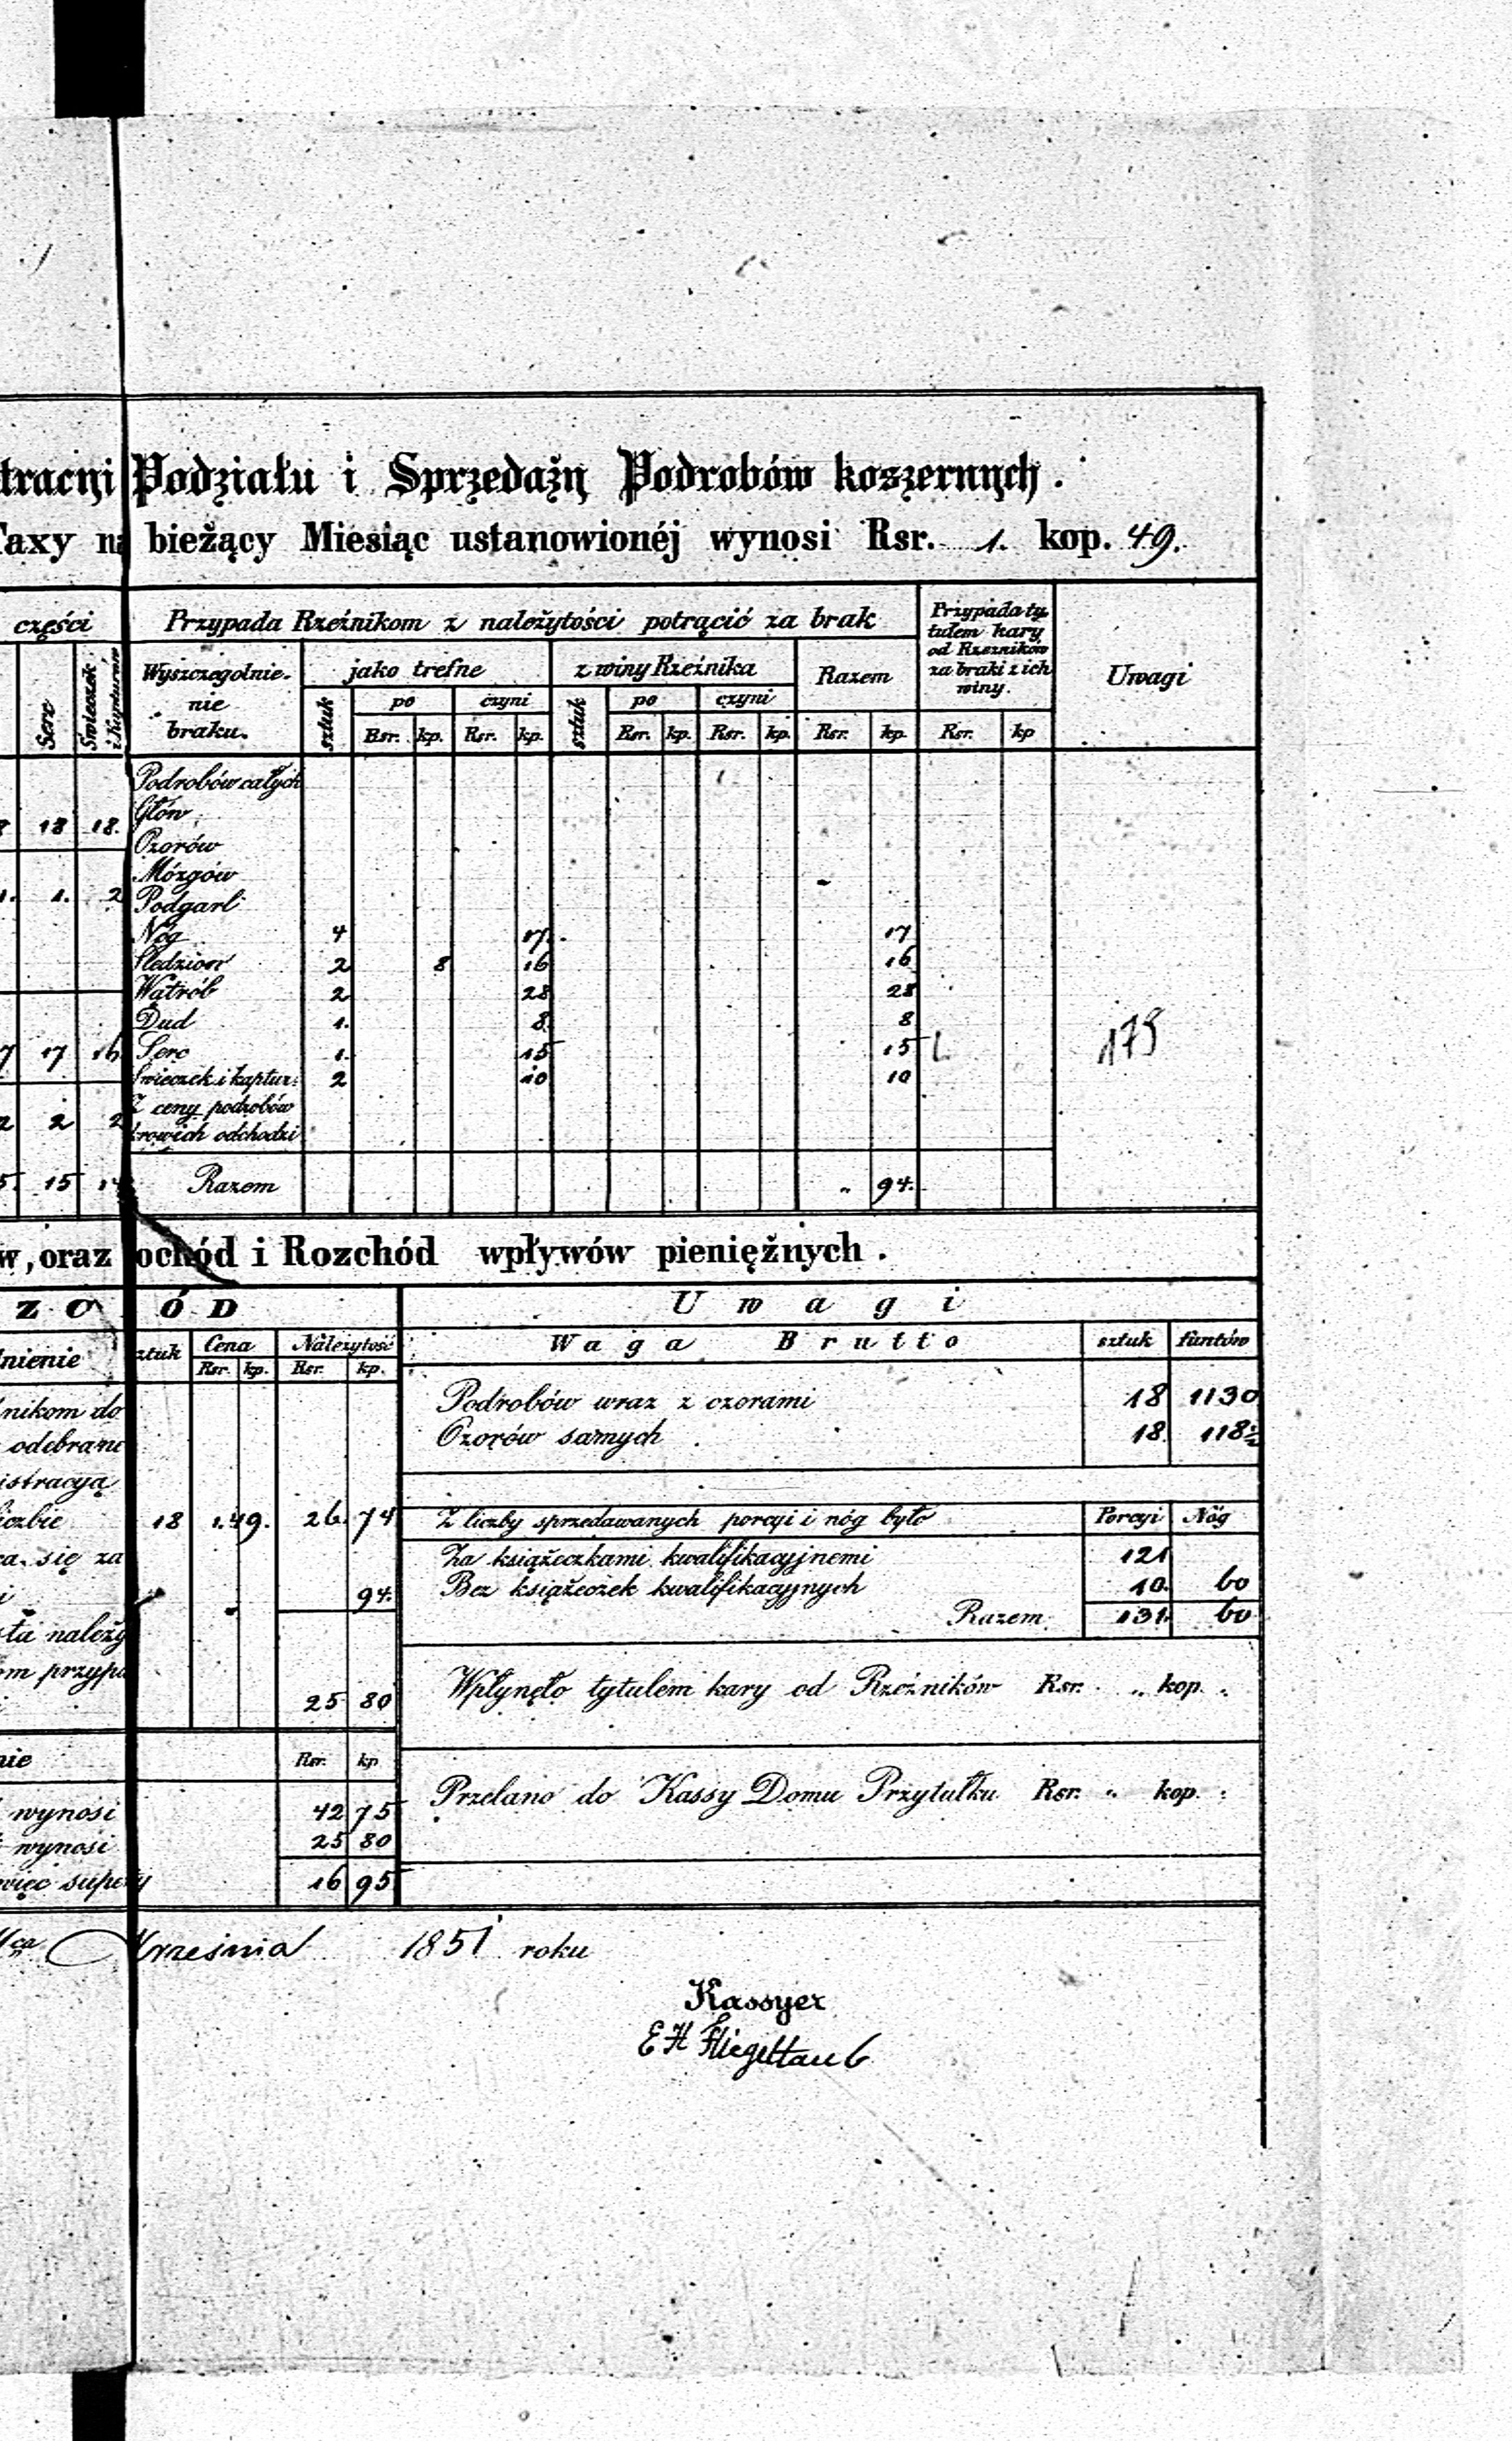 tracyi Podziału i Sprzedaży Podrobów koszernych.
Taxy na bieżący Miesiąc ustanowionéj wynosi Rsr. 1. kop. 49.
części Przypada Rzeźnikom z należytości potrącić za brak Przypada ty-
tułem kary
od Rzeźników
za braki z ich
winy. Uwagi
Serc Świeczek i Kapturów Wyszczegolnie-
nie
braku. jako trefne z winy Rzeźnika Razem
sztuk po czyni sztuk po czyni
Rsr. kp. Rsr. kp. Rsr. kp. Rsr. kp. Rsr. kp. Rsr. kp
Podrobów całych
18 18. Głów
Ozorów
Mózgów
1. 1. 2 Podgarl
Nóg 4 17. 17
Śledzion 2 8 16 16
Wątrób 2 28 28
Dud 1. 8. 8
17 16 Serc 1. 15 15 175
Świeczek i kaptur. 2 10 10
Z ceny podrobów
2 2 2 krowich odchodzi
5. 15 14 Razem " 94.
w, oraz ochód i Rozchód wpływów pieniężnych.
Z C Ó D U w a g i
lnienie sztuk Cena Należytość W a g a B r u t t o sztuk funtów
Rsr. kp. Rsr. kp.
nikom do Podrobów wraz z ozorami 18 1130
odebrane Ozorów samych 18. 118½
istracyą
liczbie 18 1.49. 26. 74 Z liczby sprzedawanych porcyi i nóg było Porcyi Nóg
ca się za Za książeczkami kwalifikacyjnemi 121
i 94. Bez książeczek kwalifikacyjnych 10. 60
Razem 131. 60
sta należy
om przypa
25 80 Wpłynęło tytułem kary od Rzeźników Rsr. " kop. "
nie Rsr. kp
wynosi 42 75 Przelano do Kassy Domu Przytułku Rsr. " kop. "
wynosi 25 80
więc super 16 95
Mca Września 1851 roku
Kassyer
E H Fliegeltaub